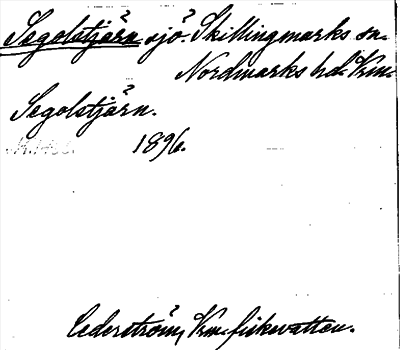 Segolstjärn sjö. Skillingmarks sn.
Nordmarks hd. Vrm.
Segolstjärn.
1896.
Cederström, Vrm. fiskevatten.